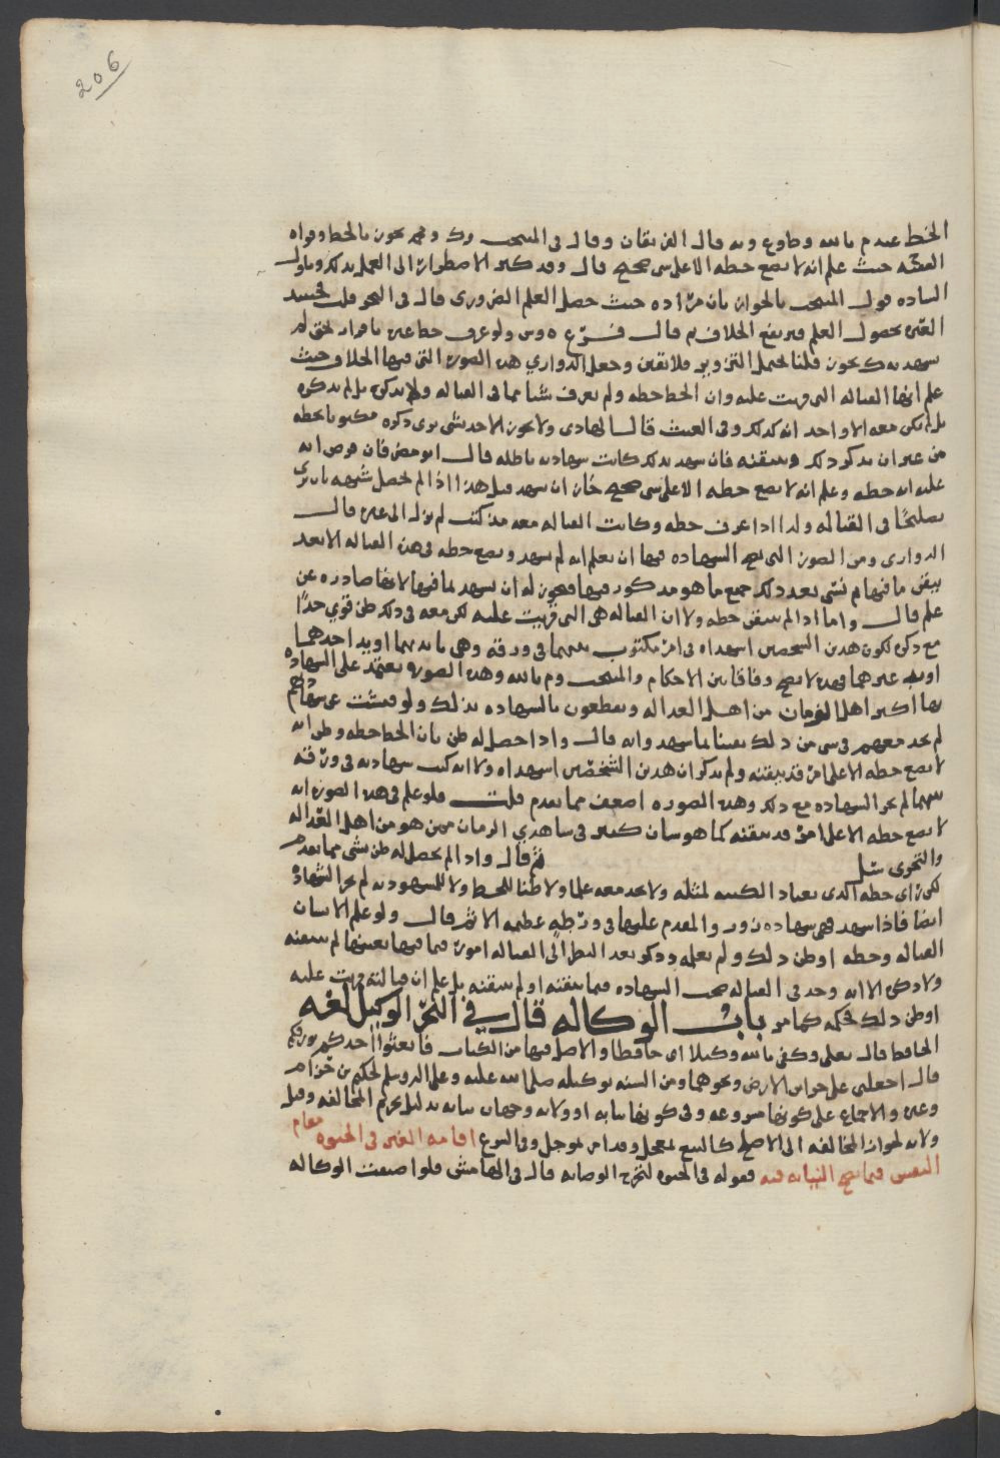 206
الخط عندم بالله وطاوع وبه قال الفريقان وقال في المنتخب وك و يجوز بالخط وقواه
حيث علم انه لا يضع خطه الا على شي صحيح قال وقد كثر الاضطرار الى العمل بذلك
الساده قول المنتخب بالجواز بان مراده حيث حصل العلم الضروري قال في البحر قلت فحينئذ
العبره بحصول العلم فيرتفع الخلاف قال فرع ولو عرف خط غيره باقرار بحق لم
يشهد به ك يجوز قلنا يحتمل التزوير فلا يقين وجعل الدواري هذه الصورة التي فيها الخلاف حيث
علم انها القباله التي قريت عليه وان الخط خطه ولم يعرف شيا مما في القباله ولم يذكره بل لم يذكره
بل لم يكن معه الا واحد انه كذلك وفي الغيث قال الهادي ولا يجوز لاحد شي يرى ذكره مكتوبا بخطه
من غير ان يذكر ذلك ويتيقنه فان شهد بذلك كانت شهادته باطله قال ابو مضر فان فرض انه
عليه انه خطه وعلم انه لا يضع خطه الا على شي صحيح جاز ان يشهد قيل هذا اذا لم يحصل شبهه بان يرى
تصليحا في القباله ولذا اذا عرف خطه وكانت القباله معه مذ كتب لم يزل الى غيره قال
الدواري ومن الصور التي تصح الشهاده فيها ان يعلم انه لم يشهد ويضع خطه في هذه القباله الا بعد
تيقن ما فيها ثم نسي بعد ذلك جميع ما هو مذكور فيها فيجوز له ان يشهد بما فيها لانها صادره عن
علم قال واما اذا لم يتيقن خطه ولا ان القباله هي التي قريت عليه لكن معه في ذلك ظن قوي جدا
مع ذكره لكون هذين الشخصين اشهداه في امر مكتوب بينهما في ورقه وهي بايديهما او يد احدهما
او يد غيرهما فهذه لا تصح وفاقا بين الاحكام والمنتخب وم بالله وهذه الصوره يعتمد على الشهاده
بها اكثر اهل الزمان من اهل العداله ويقطعون بالشهاده بذلك ولو فتشت عن
لم تجد معهم في شي من ذلك يقينا بما شهد وانه قال واذا حصل له ظن بان الخط خطه وظن انه
لا يضع خطه الا على امر قد تيقنه ولم يذكر ان هذين الشخصين اشهداه ولا انه كتب شهادته في ورقه
بينهما لم تجز الشهاده مع ذلك وهذه الصوره اضعف مما تقدم قلت فلو علم في هذه الصوره انه
لا يضع خطه الا على امر قد تيقنه كما هو شان كثير في شاهدي الزمان ممن هو من اهل العداله
والتحري
ثم قال واذا لم يحصل له ظن بشي مما تقدم
لكن راى خطه الذي يعتاد الكتب لمثله ولا يجد معه علما ولا ظنا للخط ولا للمشهود به لم تجز الشهاده
ايضا فاذا شهد فهي شهاده زور والمقدم عليها في ورطه عظيمه الا ثم قال ولو علم الانسان
القباله وخطه او ظن ذلك ولم يعلم وذكر بعد النظر الى القباله امورا فيما فيها بعينها لم يتيقنه
ولا ذكر الا انه وجد في القباله صحت الشهاده فيما تيقنه او لم يتيقنه بل علم ان قبالته قريت عليه
او ظن ذلك فحكمه كما مر باب الوكاله قال في البحر الوكيل لغه
الحافظ قال تعالى وكفى بالله وكيلا اى حافظا والاصل فيها من الكتاب فابعثوا احدكم بورقكم
قال اجعلني على خزاين الارض ونحوهما ومن السنه توكيله صلى الله عليه وعلى اله وسلم لحكيم بن حزام
وغيره والاجماع على كونها مشروعه وفي كونها نيابه او ولايه وجهان نيابه بدليل تحريم المخالفه وقيل
ولايه لجواز المخالفه الى الاصلح كالبيع بمعجل وقد امر بموجل وفي الشرع اقامه الغير في الحيوه مقام
النفس فيما تصح النيابه فيه فقوله في الحيوه لتخرج الوصايه قال في الهامش فلو اضيفت الوكاله